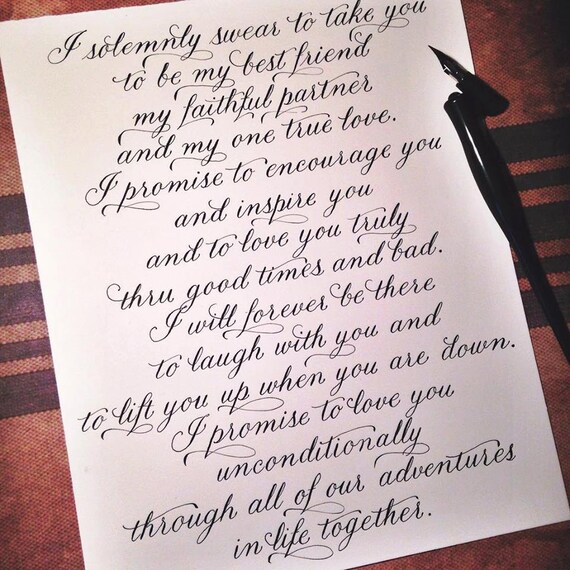 I solemnly swear to take you
to be my best friend
my faithful partner
and my one true love.
I promise to encourage you
and inspire you
and to love you truly
thru good times and bad.
I will forever be there
to laugh with you and
to lift you up when you are down.
I promise to love you
unconditionally
through all of our adventures
in life together.